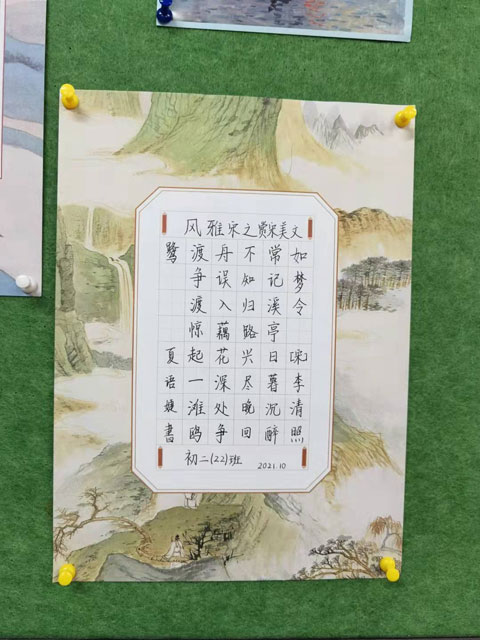 风雅宋之赏宋美文
如梦令 [宋] 李清照
常记溪亭日暮沉醉
不知归路兴尽晚回
舟误入藕花深处争
渡争渡惊起一滩鸥
鹭 夏语婕书
初二(22)班 2021.10